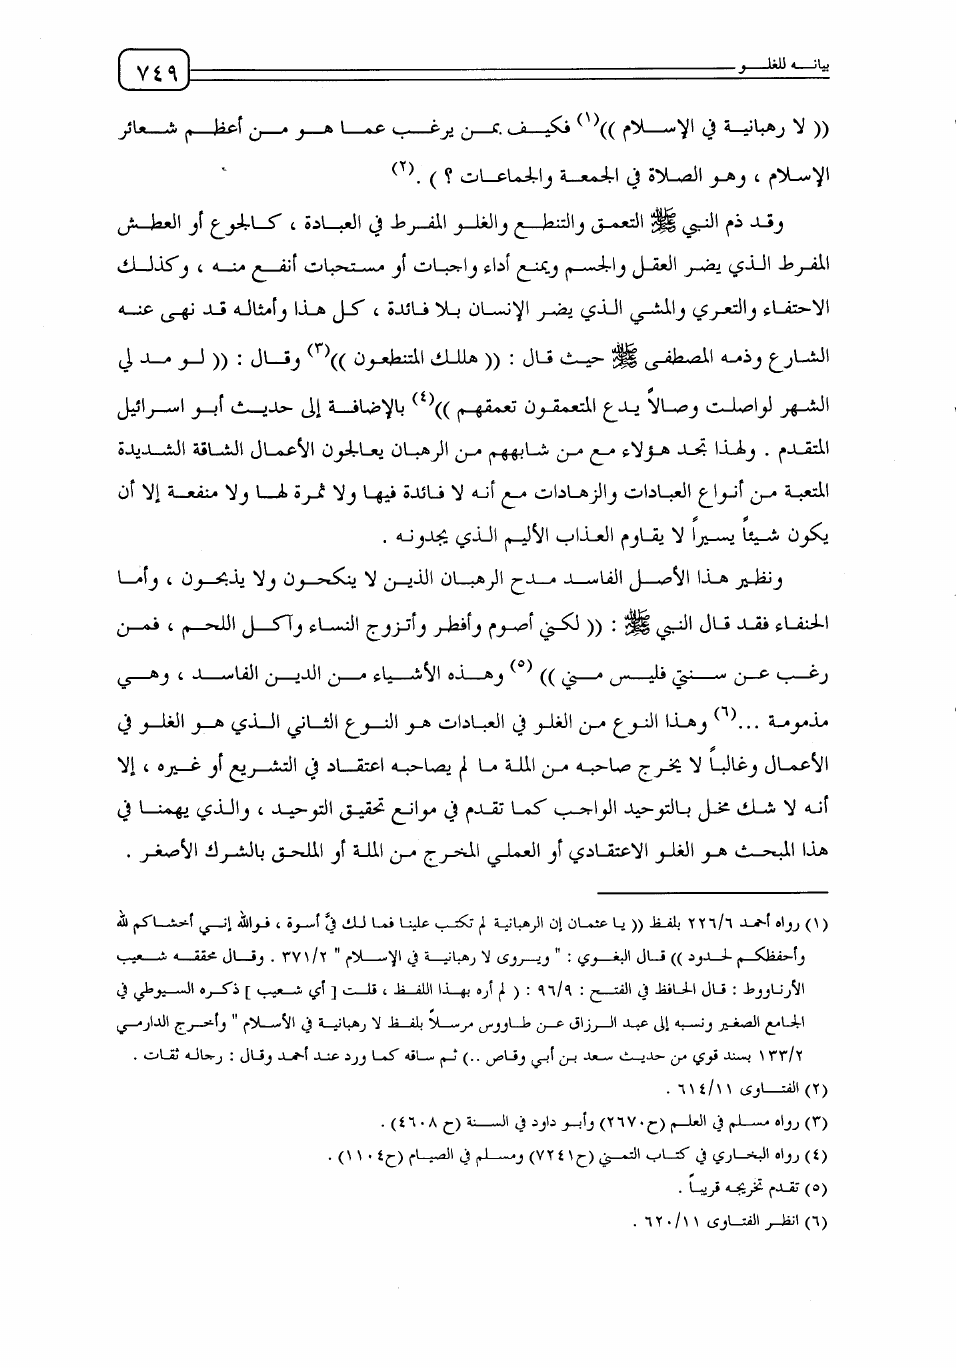 بيانه للغلو
٧٤٩
(( لا رهبانية في الإسلام ))(١) فكيف بمن يرغب عما هو من أعظم شعائر
الإسلام ، وهو الصلاة في الجمعة والجماعات ؟ ) .(٢)
وقد ذم النبي ﷺ التعمق والتنطع والغلو المفرط في العبادة ، كالجوع أو العطش
المفرط الذي يضر العقل والجسم ويمنع أداء واجبات أو مستحبات أنفع منه ، وكذلك
الاحتفاء والتعري والمشي الذي يضر الإنسان بلا فائدة ، كل هذا وأمثاله قد نهى عنه
الشارع وذمه المصطفى ﷺ حيث قال : (( هلك المتنطعون ))(٣) وقال : (( لو مد لي
الشهر لواصلت وصالاً يدع المتعمقون تعمقهم ))(٤) بالإضافة إلى حديث أبو اسرائيل
المتقدم . ولهذا تجد هؤلاء مع من شابههم من الرهبان يعالجون الأعمال الشاقة الشديدة
المتعبة من أنواع العبادات والزهادات مع أنه لا فائدة فيها ولا ثمرة لها ولا منفعة إلا أن
يكون شيئاً يسيراً لا يقاوم العذاب الأليم الذي يجدونه .
ونظير هذا الأصل الفاسد مدح الرهبان الذين لا ينكحون ولا يذبحون ، وأما
الحنفاء فقد قال النبي ﷺ : (( لكني أصوم وأفطر وأتزوج النساء وآكل اللحم ، فمن
رغب عن سنتي فليس مني )) (٥) وهذه الأشياء من الدين الفاسد ، وهي
مذمومة ...(٦) وهذا النوع من الغلو في العبادات هو النوع الثاني الذي هو الغلو في
الأعمال وغالباً لا يخرج صاحبه من الملة ما لم يصاحبه اعتقاد في التشريع أو غيره ، إلا
أنه لا شك مخل بالتوحيد الواجب كما تقدم في موانع تحقيق التوحيد ، والذي يهمنا في
هذا المبحث هو الغلو الاعتقادي أو العملي المخرج من الملة أو الملحق بالشرك الأصغر .
(١) رواه أحمد ٢٢٦/٦ بلفظ (( يا عثمان إن الرهبانية لم تكتب علينا فما لك فيَّ أسوة ، فوالله إني أخشاكم لله
وأحفظكم لحدود )) قال البغوي : " ويروى لا رهبانية في الإسلام " ٣٧١/٢ . وقال محققه شعيب
الأرناووط : قال الحافظ في الفتح : ٩٦/٩ : ( لم أره بهذا اللفظ ، قلت [ أي شعيب ] ذكره السيوطي في
الجامع الصغير ونسبه إلى عبد الرزاق عن طاووس مرسلاً بلفظ لا رهبانية في الأسلام " وأخرج الدارمي
١٣٣/٢ بسند قوي من حديث سعد بن أبي وقاص ..) ثم ساقه كما ورد عند أحمد وقال : رجاله ثقات .
(٢) الفتاوى ٦١٤/١١ .
(٣) رواه مسلم في العلم (ح٢٦٧٠) وأبو داود في السنة (ح ٤٦٠٨) .
(٤) رواه البخاري في كتاب التمني (ح٧٢٤١) ومسلم في الصيام (ح١١٠٤) .
(٥) تقدم تخريجه قريباً .
(٦) انظر الفتاوى ٦٢٠/١١ .